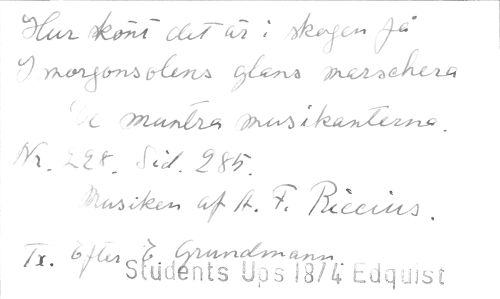 Hur skönt det är i skogen på
I morgonsolens glans marschera
De muntra musikanterna.
Nr. 228. Sid. 285.
Musiken af A. F. Riccius.
Tx. Efter E Grundmann.
Students Ups 18/4 Edquist